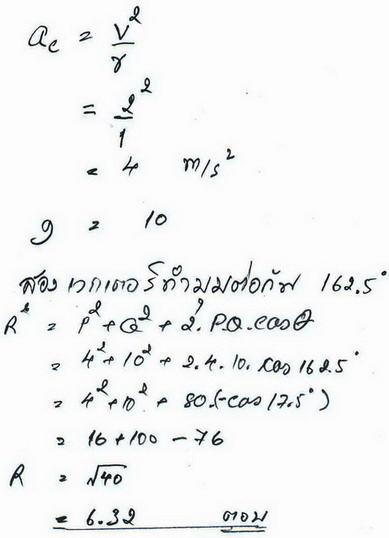 a_c = v²/r
= 2²/1
= 4 m/s²
g = 10
สอง เวกเตอร์ทำมุมต่อกัน 162.5°
R² = P²+Q²+2.PQ.cosθ
= 4²+10²+2.4.10.cos162.5°
= 4²+10²+80(-cos17.5°)
= 16+100-76
R = √40
= 6.32 ตอบ